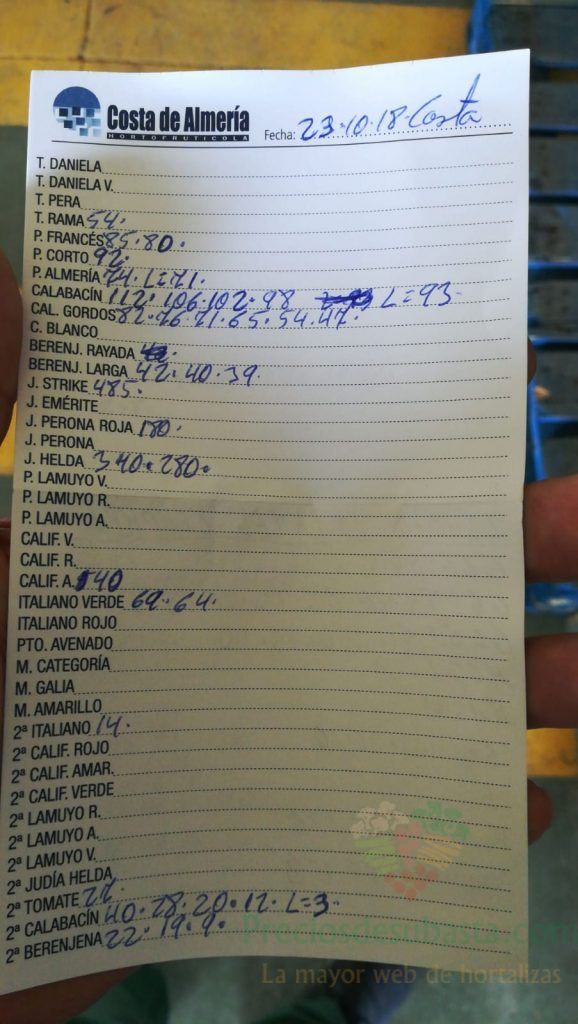 Costa de Almería
HORTOFRUTÍCOLA
Fecha: 23·10·18· Costa
T. DANIELA
T. DANIELA V.
T. PERA
T. RAMA 54·
P. FRANCÉS 85·80·
P. CORTO 92·
P. ALMERÍA 74·L=71·
CALABACÍN 112·106·102·98 L=93·
CAL. GORDOS 82·76·71·65·54·47·
C. BLANCO
BERENJ. RAYADA
BERENJ. LARGA 42·40·39·
J. STRIKE 485·
J. EMÉRITE
J. PERONA ROJA 180·
J. PERONA
J. HELDA 340·280·
P. LAMUYO V.
P. LAMUYO R.
P. LAMUYO A.
CALIF. V.
CALIF. R.
CALIF. A. 140
ITALIANO VERDE 69·64·
ITALIANO ROJO
PTO. AVENADO
M. CATEGORÍA
M. GALIA
M. AMARILLO
2ª ITALIANO 14·
2ª CALIF. ROJO
2ª CALIF. AMAR.
2ª CALIF. VERDE
2ª LAMUYO R.
2ª LAMUYO A.
2ª LAMUYO V.
2ª JUDÍA HELDA
2ª TOMATE
2ª CALABACÍN 40·28·20·12·L=3·
2ª BERENJENA 22·19·9·
Preciosdesubasta.com
La mayor web de hortalizas